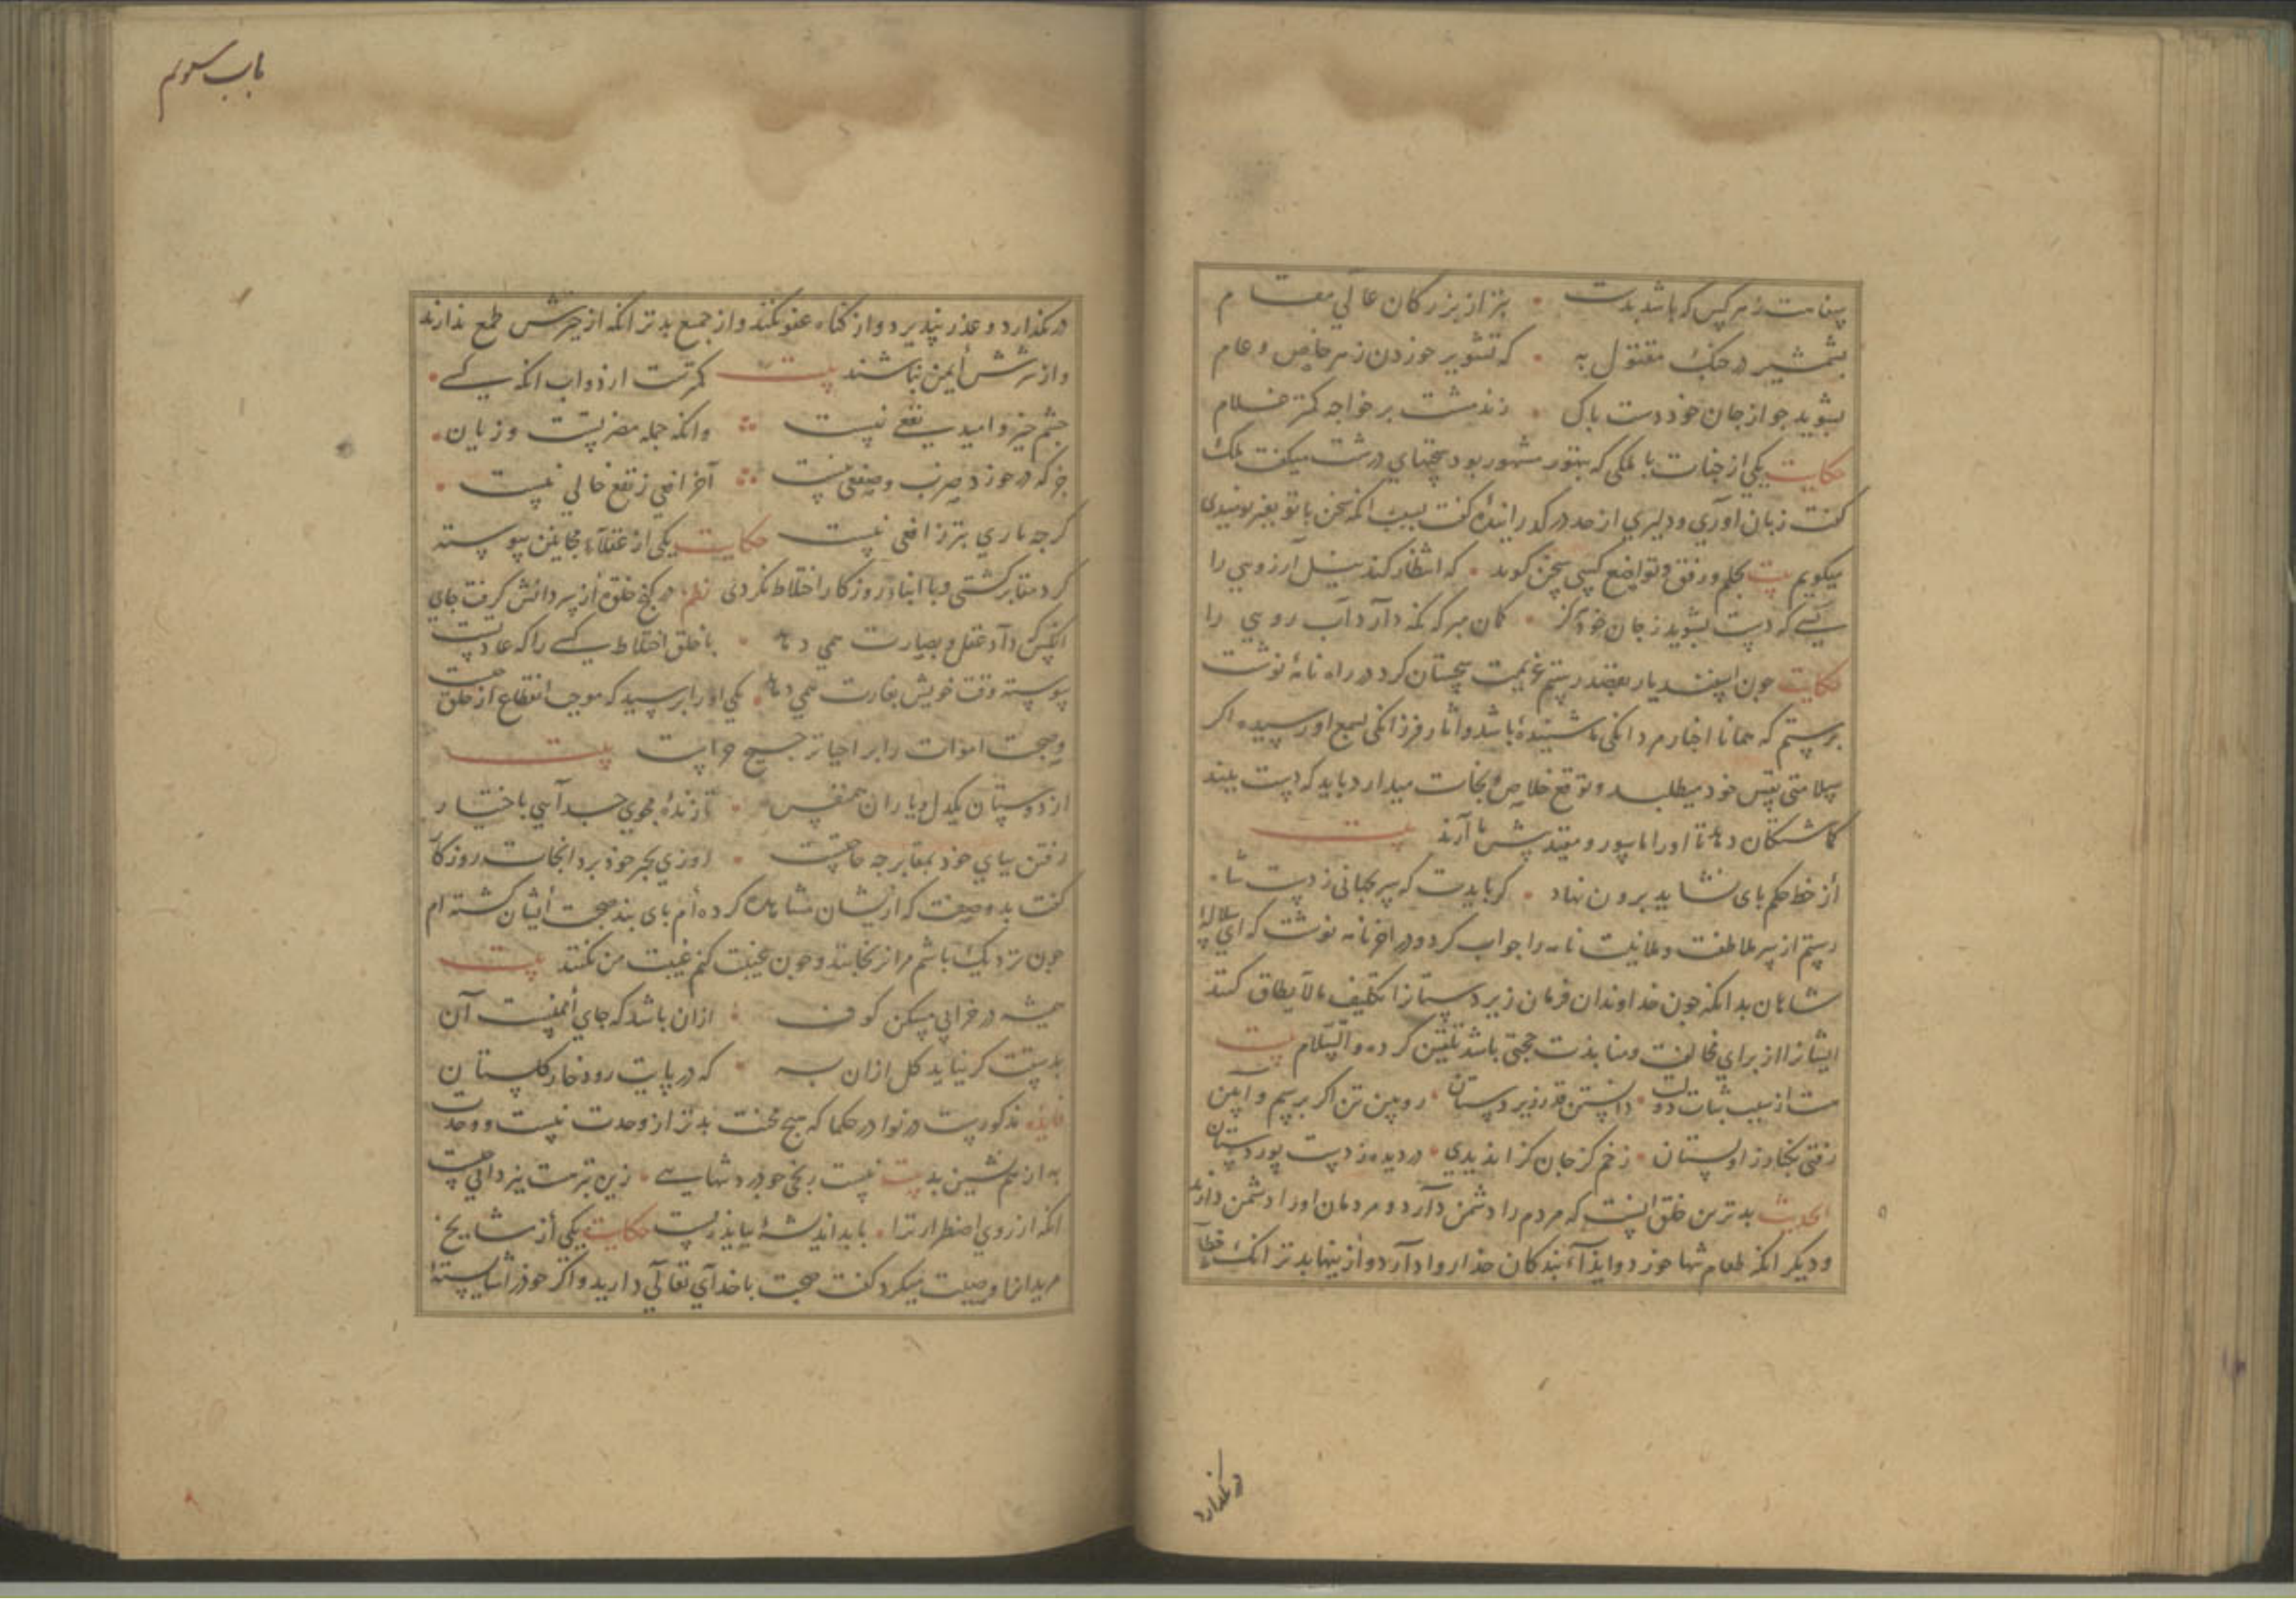 سفاهت ز هر کس که باشد بدست • بتر از بزرکان عالي مقام
بشمشیر در جنک مقتول به • که تشویر خوردن ز هر خاص و عام
بشوید جو از جان خود دست باک • زند مشت بر خواجه کمتر غلام
حکایت یکی از جنات با ملکی که بتهور مشهور بود سخنهاي درشت میکفت ملک
کفت زبان اوري و دلیري از حد در کدرانیدهٔ کفت بسبب انکه سخن با تو بغیر نومیدی
میکویم بیت بحلم و رفق و تواضع کسی سخن کوید • که انتظار کند نیل آرزویي را
کسے که دست بشوید ز جان خود هرکز • کمان مبر که نکه دارد آب رویي را
حکایت جون اسفندیار بقصد رستم عزیمت سجستان کرد در راه نامهٔ نوشت
برستم که همانا اخبار مردانکی ما شنیدهٔ باشد و اثار فرزانکی بسمع او رسیده اکر
سلامتی نفس خود میطلبد و توقع خلاص و نجات میدارد باید که دست ببند
کماشتکان دهد تا اورا ماسور و مقید پیش ما آرند بیت
از خط حکم بای نشاید برون نهاد • کر بایدت که سر بجهانی ز دست شاه
رستم از سر ملاطفت و طمانیت نامه را جواب کرد و در اخر نامه نوشت که اي سلالهٔ
شاهان بدانکه جون خداوندان فرمان زیردستانرا تکلیف مالایطاق کنند
ایشانرا از براي مخالفت و منابذت حجتی باشد تلقین کرده والسلام بیت
هست از سبب ثبات دولت • دانستن قدر زیردستان • رویین تن اکر برسم و آیین
رفتی بجاور زاولستان • زخم کز جان کزا ندیدي • در دیده ز دست بور دستان
الحدیث بدترین خلق انست که مردم را دشمن دارد و مردمان اورا دشمن دارند
و دیکر انکه طعام تنها خورد و ایذآء بندکان خدا روا دارد و از ینها بدتر انک خطآء
در نکذارد
باب سوم
در نکذارد و عذر نپذیرد و از کناه عفو نکند و از جمیع بدتر انکه از خیرش طمع ندارند
و از شرش أیمن نباشند بیت کمترست از دواب انکه کسے •
جشم خیر و امید نفعے نیست ⁘ وانکه جمله مضرتست و زیان •
جز که در خورد ضرب و صفعی نیست ⁘ آخر افعي ز نفع خالي نیست •
کرجه ماري بتر ز افعي نیست حکایت یکی از عقلآء مجانین بیوسته
کرد مقابر کشتی و با ابناء روزکار اختلاط نکردی نظم • در کنج خلوة از سر دانش کرفت جاي
انکس که داد عقل و بصارت همي دهد • با خلق اختلاط کسے را که عادتست
بیوسته وقت خویش بغارت همي دهد • یکي اورا برسید که موجب انقطاع از خلق
و صحبت اموات را بر احیا ترجیح جراست بیت
از دوستان یکدل و یاران همنفس • تا زندهٔ مجوي جدآیي باختیار
رفتن ببای خود بمقابر جه حاجتست • روزي بجبر خود برد انجات روزکار
کفت بدو صفت که ازیشان مشاهده کرده أم بای بند صحبت أیشان کشته ام
جون نزدیک باشم مرا نرنجانند و جون غیبت کنم غیبت من نکنند بیت
همیشه در خرابي مسکن کوف • ازان باشد که جاي أمنیست آن
بدستت کر نیاید کل ازان به • که در بایت رود خار کلستان
فایده مذکورست در نوادر حکما که هیج محنت بدتر از وحدت نیست و وحدت
به از همنشین بد بیت نیست رنجی جو درد تنهایے • زین بتر محنت یزدانیست
انکه از روي اضطرار ترا • باید اندیشهٔ بباید زیست حکایت یکی از مشایخ •
مریدانرا وصیت میکرد کفت صحبت با خدآي تعالي دارید و اکر خودرا شایستهٔ